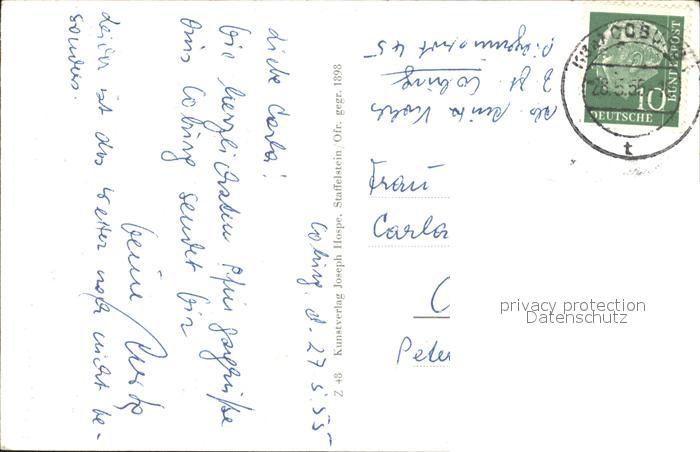 Coburg, d. 27.5.55
Liebe Carla!
Die herzlichsten Pfingstgrüße
aus Coburg sendet Dir
Deine
Leider ist das Wetter noch nicht be-
sonders.
Z 48 Kunstverlag Joseph Hospe, Staffelstein/Ofr. gegr. 1898
Abs. Anita
z. Zt. Coburg
45
Frau
Carla
C
Peter
COBURG
28.5.55
t
10
DEUTSCHE
BUNDESPOST
privacy protection
Datenschutz